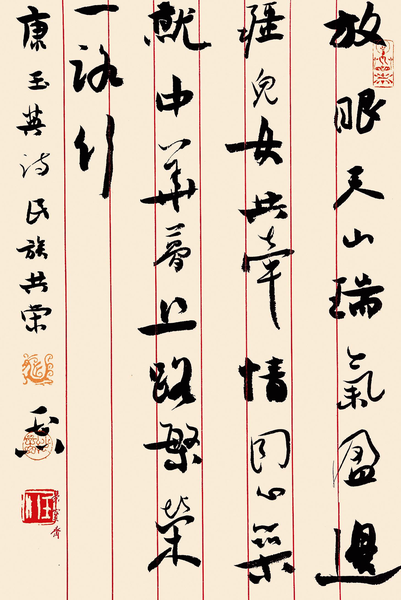 放眼天山瑞氣盈邊
疆兒女共牽情同心築
就中華夢丝路繁榮
一路行
康玉英詩民族共榮